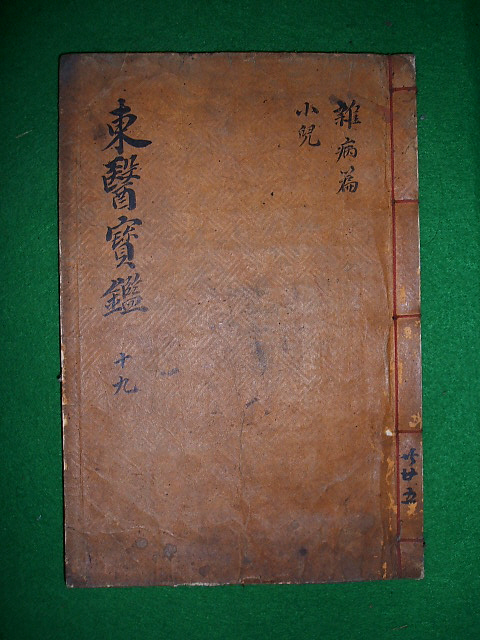 東醫寶鑑 十九
雜病篇
小兒
共廿五